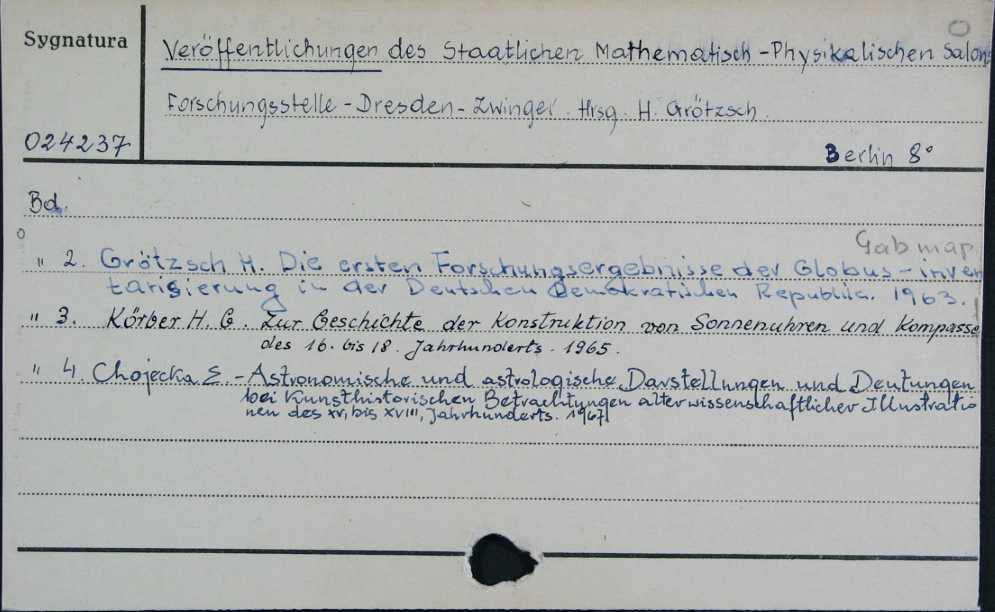 Sygnatura
Veröffentlichungen des Staatlichen Mathematisch-Physikalischen Salons
Forschungsstelle-Dresden-Zwinger. Hrsg. H. Grötzsch.
024237
Berlin 8°
Bd.
Gab map
" 2. Grötzsch H. Die ersten Forschungsergebnisse der Globus-inven
tarisierung in der Deutschen Demokratischen Republik. 1963.
" 3. Körber H. G. Zur Geschichte der Konstruktion von Sonnenuhren und Kompasse
des 16. bis 18. Jahrhunderts. 1965.
" 4. Chojecka E - Astronomische und astrologische Darstellungen und Deutungen
bei Kunsthistorischen Betrachtungen alter wissenschaftlicher Illustratio
nen des XV, bis XVIII, Jahrhunderts. 1967